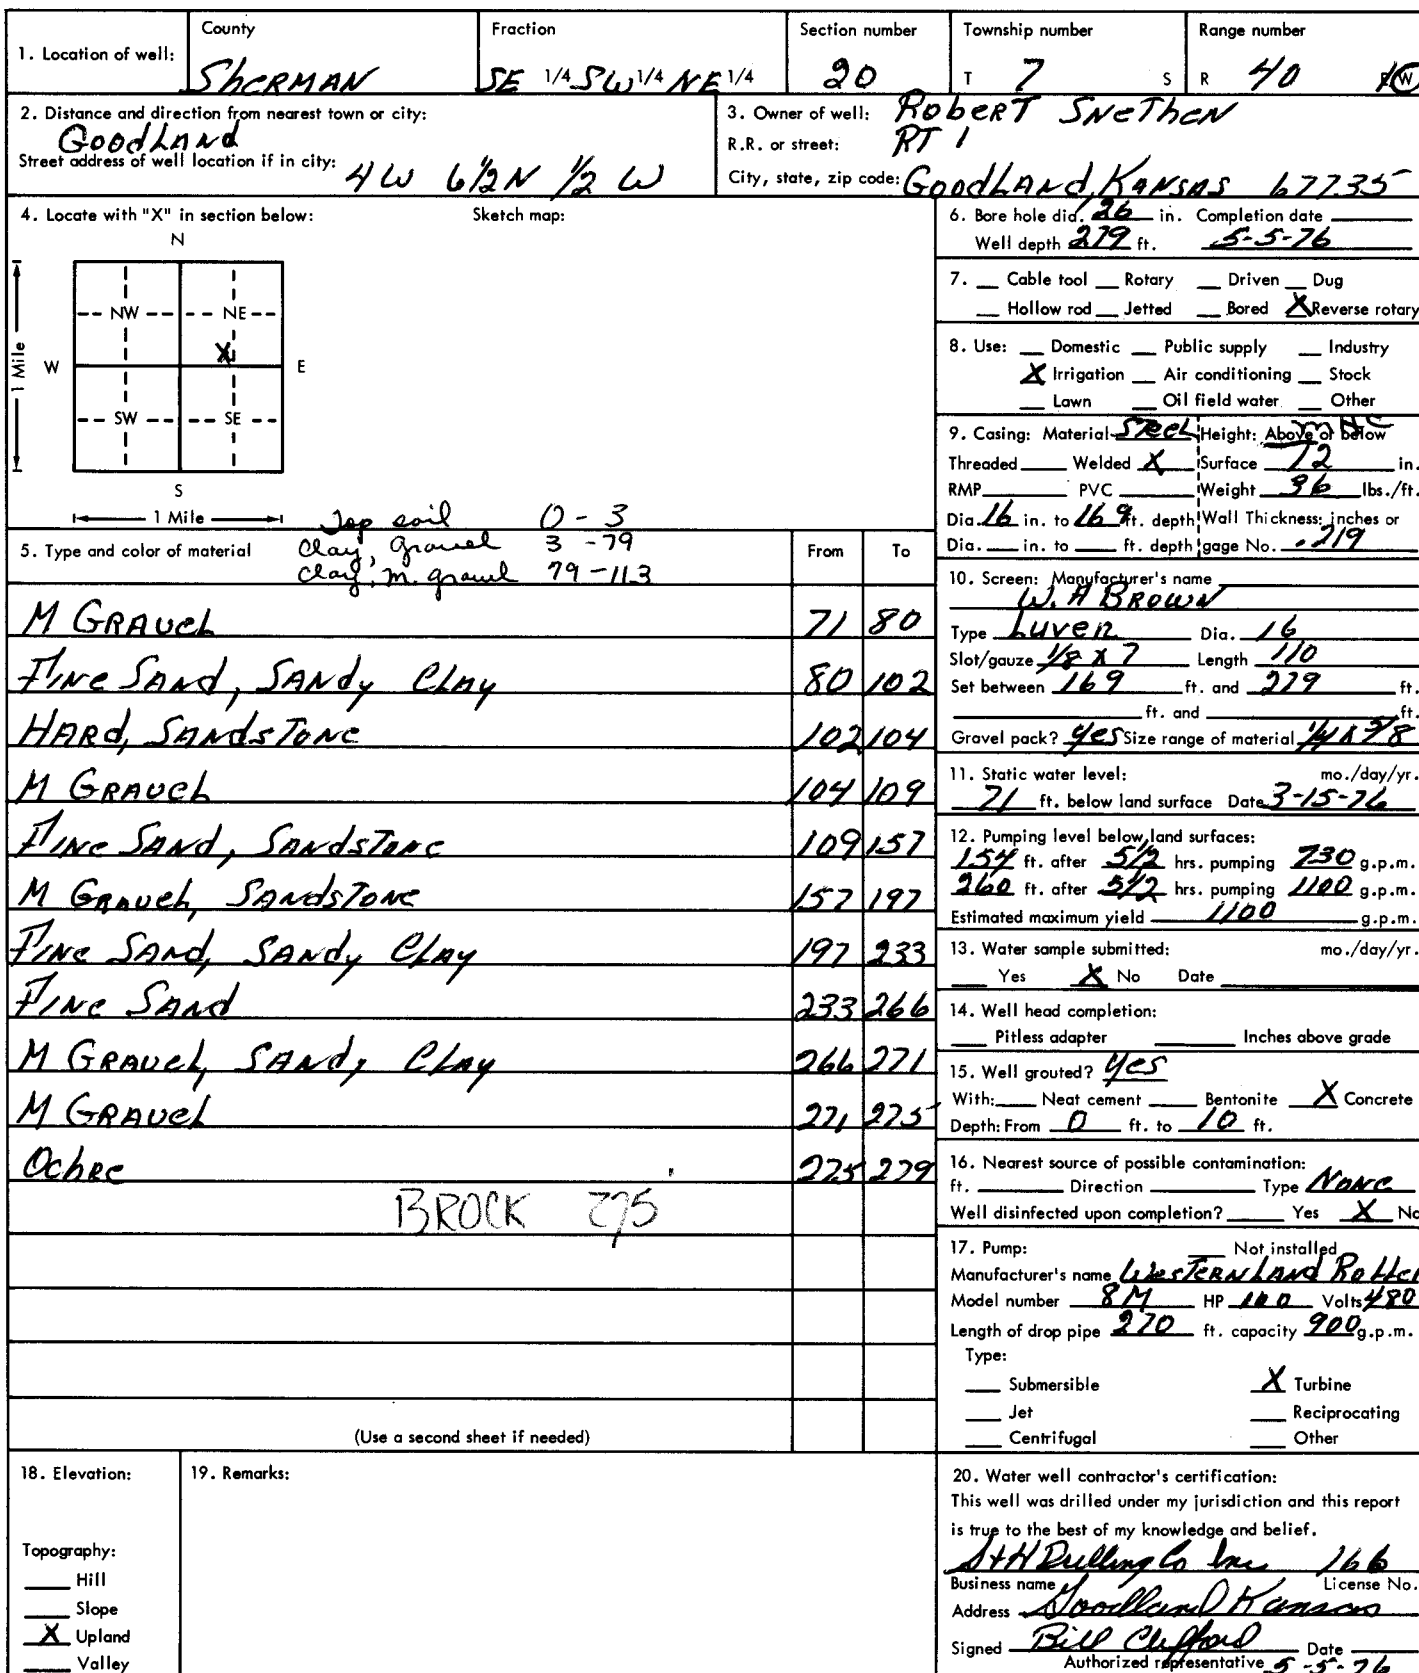 County Fraction Section number Township number Range number
1. Location of well: Sherman SE 1/4 SW 1/4 NE 1/4 20 T 7 S R 40 W
2. Distance and direction from nearest town or city: 3. Owner of well: Robert Snethen
Goodland R.R. or street: RT 1
Street address of well location if in city: 4W 6 1/2 N 1/2 W City, state, zip code: Goodland, Kansas 67735
4. Locate with "X" in section below: Sketch map:
N
NW NE
X
W E
1 Mile
SW SE
S
1 Mile
Top soil 0-3
5. Type and color of material Clay, gravel 3-79 From To
Clay, M. gravel 79-113
M Gravel 71 80
Fine Sand, Sandy Clay 80 102
Hard, Sandstone 102 104
M Gravel 104 109
Fine Sand, Sandstone 109 157
M Gravel, Sandstone 157 197
Fine Sand, Sandy Clay 197 233
Fine Sand 233 266
M Gravel, Sandy Clay 266 271
M Gravel 271 275
Ochre 275 279
BROCK 275'
(Use a second sheet if needed)
6. Bore hole dia. 26 in. Completion date
Well depth 279 ft. 5-5-76
7. Cable tool Rotary Driven Dug
Hollow rod Jetted Bored X Reverse rotary
8. Use: Domestic Public supply Industry
X Irrigation Air conditioning Stock
Lawn Oil field water Other
9. Casing: Material Steel Height: Above or below
Threaded Welded X Surface 12 in.
RMP PVC Weight 36 lbs./ft.
Dia. 16 in. to 169 ft. depth Wall Thickness: inches or
Dia. in. to ft. depth gage No. .219
10. Screen: Manufacturer's name
W. A Brown
Type Luver Dia. 16
Slot/gauze 1/8 X 7 Length 110
Set between 169 ft. and 279 ft.
ft. and ft.
Gravel pack? yes Size range of material 1/4 X 3/8
11. Static water level: mo./day/yr.
71 ft. below land surface Date 3-15-76
12. Pumping level below land surfaces:
154 ft. after 5 1/2 hrs. pumping 730 g.p.m.
260 ft. after 5 1/2 hrs. pumping 1100 g.p.m.
Estimated maximum yield 1100 g.p.m.
13. Water sample submitted: mo./day/yr.
Yes X No Date
14. Well head completion:
Pitless adapter Inches above grade
15. Well grouted? yes
With: Neat cement Bentonite X Concrete
Depth: From 0 ft. to 10 ft.
16. Nearest source of possible contamination:
ft. Direction Type None
Well disinfected upon completion? Yes X No
17. Pump: Not installed
Manufacturer's name Western Land Roller
Model number 8M HP 100 Volts 480
Length of drop pipe 270 ft. capacity 900 g.p.m.
Type:
Submersible X Turbine
Jet Reciprocating
Centrifugal Other
18. Elevation: 19. Remarks:
Topography:
Hill
Slope
X Upland
Valley
20. Water well contractor's certification:
This well was drilled under my jurisdiction and this report
is true to the best of my knowledge and belief.
S+H Drilling Co Inc 166
Business name License No.
Address Goodland Kansas
Signed Bill Clifford Date
Authorized representative 5-5-76